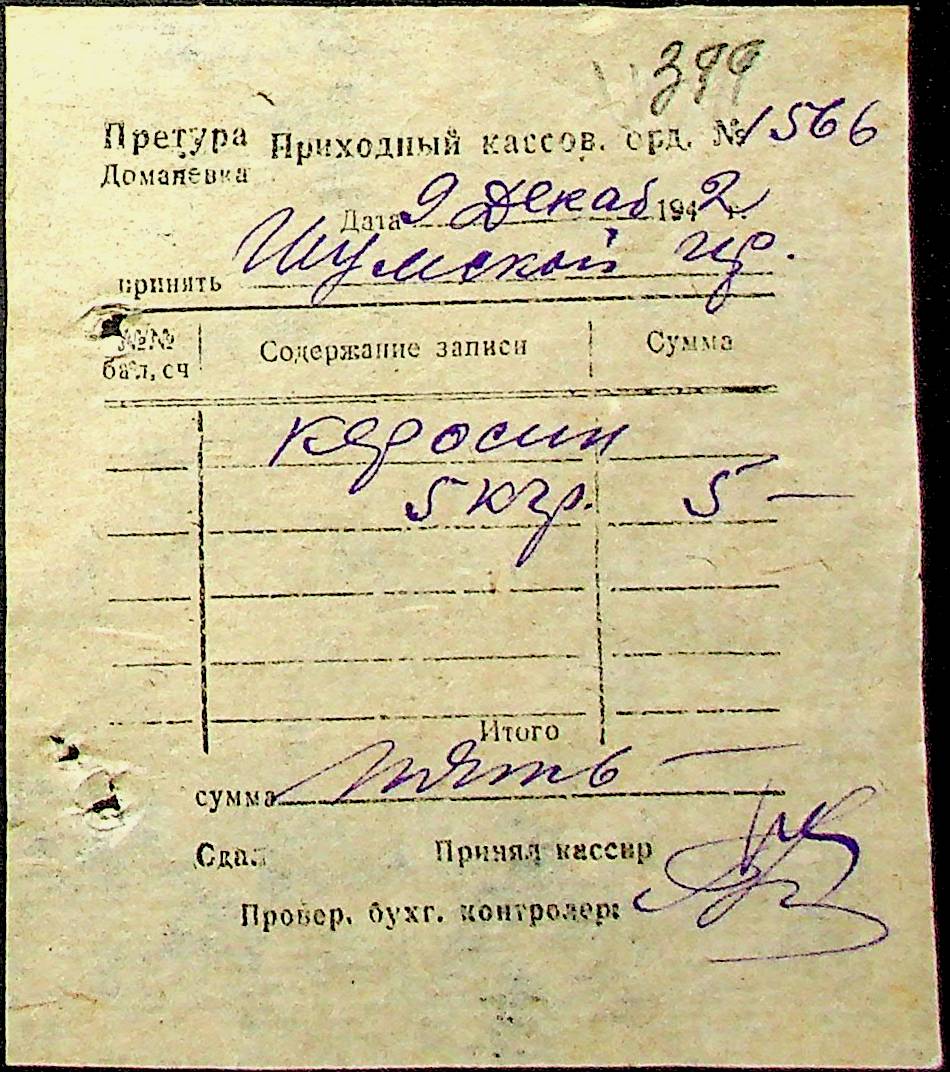 399
Претура Приходный кассов. орд. № 1566
Доманевка
Дата 9 Декаб 1942 г.
принять Шумской гр.
№№ бал, сч Содержание записи Сумма
керосин
5 кгр. 5 —
Итого
сумма пять —
Сдал Принял кассир
Провер. бухг. контролер: